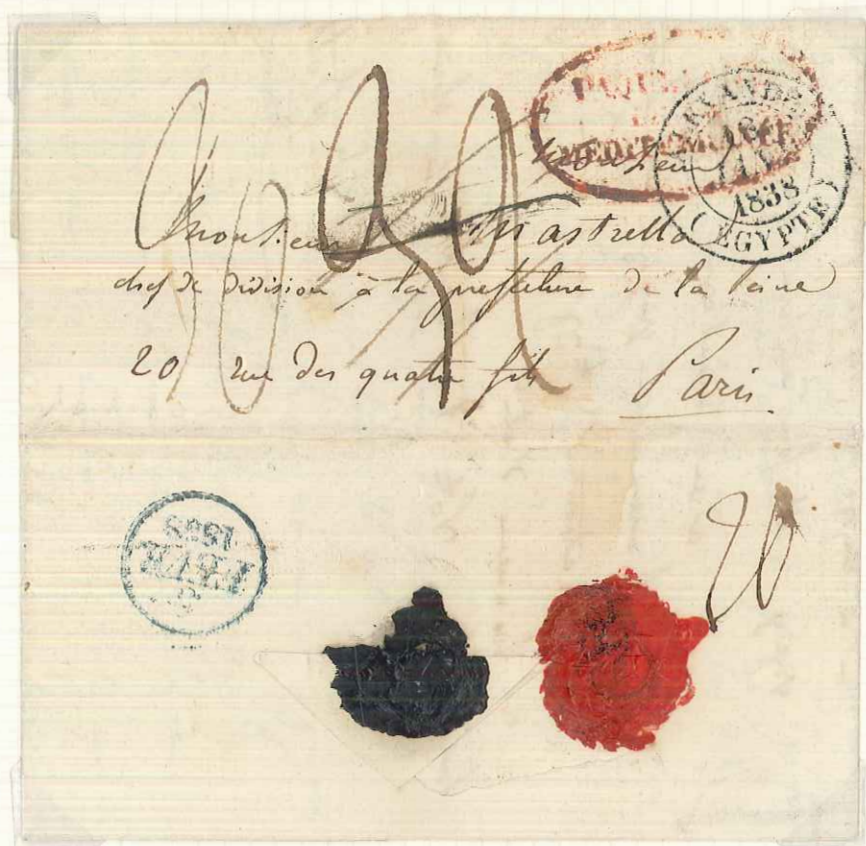 MEDITERRANEE
ALEXANDRIE
16
JANV.
1838
(EGYPTE)
Monsieur
Monsieur Mastrella
chef de division à la prefecture de la Seine
20 rue des quatre fils Paris
20
1838
FEVR